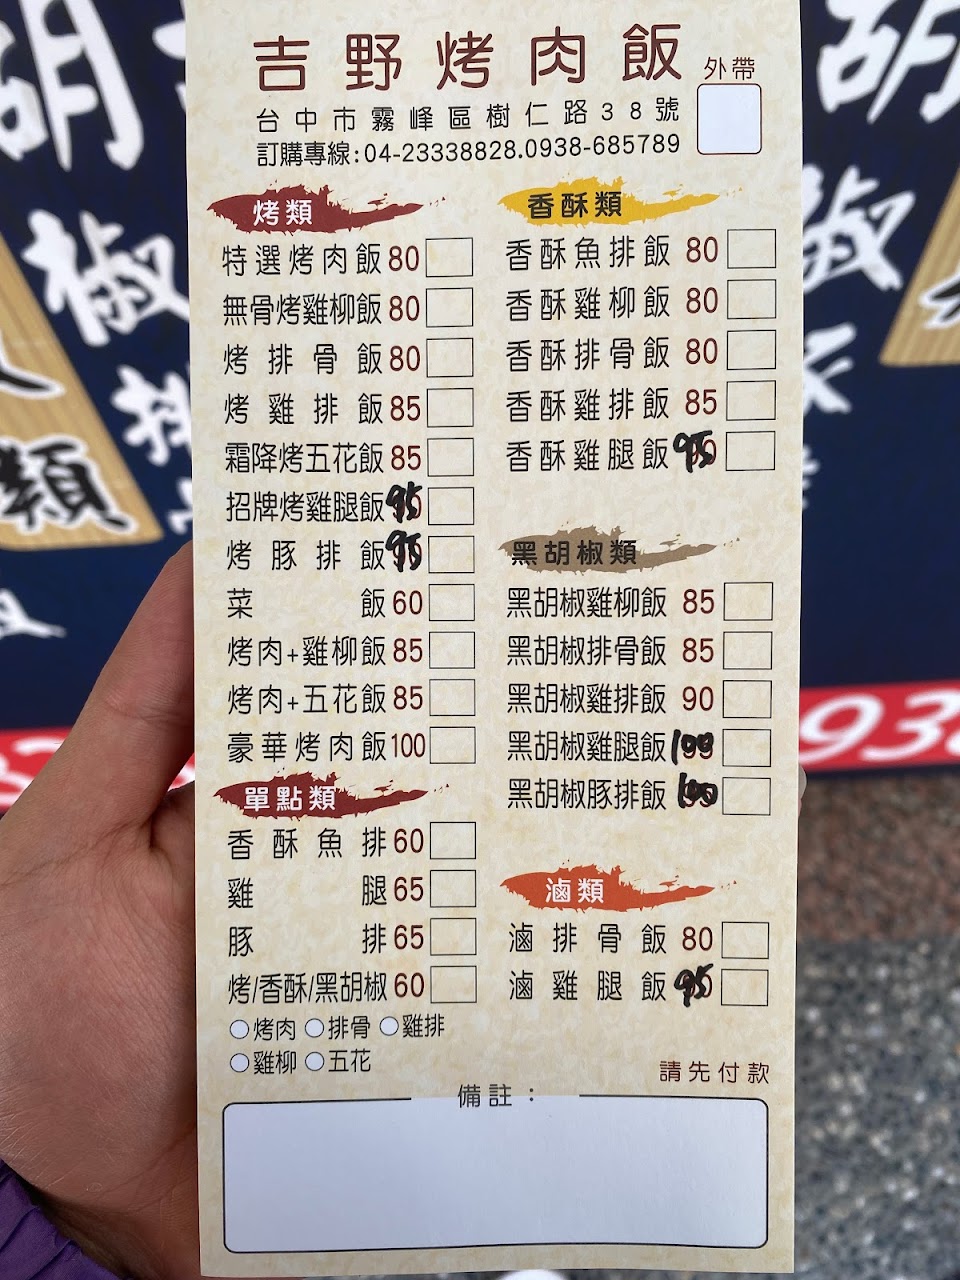 吉野烤肉飯
外帶
台中市霧峰區樹仁路38號
訂購專線:04-23338828.0938-685789
烤類
特選烤肉飯80
無骨烤雞柳飯80
烤排骨飯80
烤雞排飯85
霜降烤五花飯85
招牌烤雞腿飯95
烤豚排飯95
菜飯60
烤肉+雞柳飯85
烤肉+五花飯85
豪華烤肉飯100
單點類
香酥魚排60
雞腿65
豚排65
烤/香酥/黑胡椒60
烤肉 排骨 雞排
雞柳 五花
香酥類
香酥魚排飯 80
香酥雞柳飯 80
香酥排骨飯 80
香酥雞排飯 85
香酥雞腿飯95
黑胡椒類
黑胡椒雞柳飯 85
黑胡椒排骨飯 85
黑胡椒雞排飯 90
黑胡椒雞腿飯100
黑胡椒豚排飯100
滷類
滷排骨飯 80
滷雞腿飯95
請先付款
備註：
胡
椒
排
類
胡
椒
93